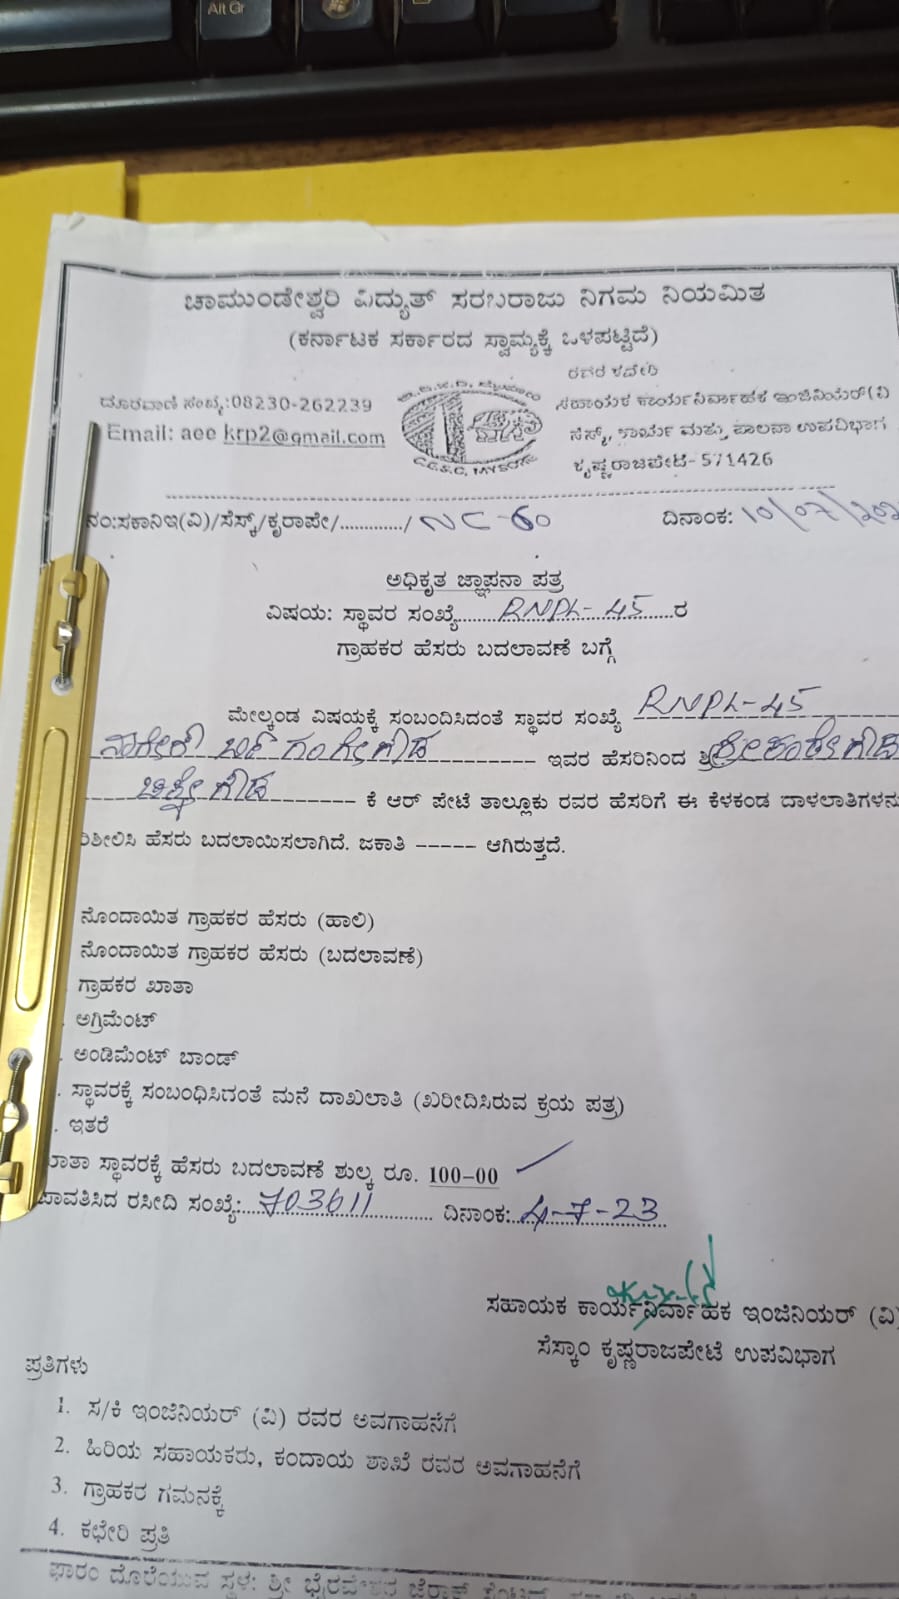 Alt Gr
ಚಾಮುಂಡೇಶ್ವರಿ ವಿದ್ಯುತ್ ಸರಬರಾಜು ನಿಗಮ ನಿಯಮಿತ
(ಕರ್ನಾಟಕ ಸರ್ಕಾರದ ಸ್ವಾಮ್ಯಕ್ಕೆ ಒಳಪಟ್ಟಿದೆ)
ರವರ ಕಛೇರಿ
ದೂರವಾಣಿ ಸಂಖ್ಯೆ:08230-262239
ಸಹಾಯಕ ಕಾರ್ಯನಿರ್ವಾಹಕ ಇಂಜಿನಿಯರ್(ವಿ
Email: aee krp2@gmail.com
ಸೆಸ್ಕ್, ಕಾರ್ಯ ಮತ್ತು ಪಾಲನಾ ಉಪವಿಭಾಗ
C.E.S.C, MYSORE
ಕೃಷ್ಣರಾಜಪೇಟೆ-571426
ನಂ:ಸಕಾನಿಇ(ವಿ)/ಸೆಸ್ಕ್/ಕೃರಾಪೇ/............/ NC-60
ದಿನಾಂಕ: 10/07/202
ಅಧಿಕೃತ ಜ್ಞಾಪನಾ ಪತ್ರ
ವಿಷಯ: ಸ್ಥಾವರ ಸಂಖ್ಯೆ........RNPL-45......ರ
ಗ್ರಾಹಕರ ಹೆಸರು ಬದಲಾವಣೆ ಬಗ್ಗೆ
ಮೇಲ್ಕಂಡ ವಿಷಯಕ್ಕೆ ಸಂಬಂದಿಸಿದಂತೆ ಸ್ಥಾವರ ಸಂಖ್ಯೆ RNPL-45
ಇವರ ಹೆಸರಿನಿಂದ
ಕೆ ಆರ್ ಪೇಟೆ ತಾಲ್ಲೂಕು ರವರ ಹೆಸರಿಗೆ ಈ ಕೆಳಕಂಡ ದಾಳಲಾತಿಗಳನು
ರಿಶೀಲಿಸಿ ಹೆಸರು ಬದಲಾಯಿಸಲಾಗಿದೆ. ಜಕಾತಿ ----- ಆಗಿರುತ್ತದೆ.
ನೊಂದಾಯಿತ ಗ್ರಾಹಕರ ಹೆಸರು (ಹಾಲಿ)
ನೊಂದಾಯಿತ ಗ್ರಾಹಕರ ಹೆಸರು (ಬದಲಾವಣೆ)
ಗ್ರಾಹಕರ ಖಾತಾ
ಅಗ್ರಿಮೆಂಟ್
ಅಂಡಿಮೆಂಟ್ ಬಾಂಡ್
ಸ್ಥಾವರಕ್ಕೆ ಸಂಬಂಧಿಸಿದಂತೆ ಮನೆ ದಾಖಲಾತಿ (ಖರೀದಿಸಿರುವ ಕ್ರಯ ಪತ್ರ)
ಇತರೆ
ಖಾತಾ ಸ್ಥಾವರಕ್ಕೆ ಹೆಸರು ಬದಲಾವಣೆ ಶುಲ್ಕ ರೂ. 100-00
ಪಾವತಿಸಿದ ರಸೀದಿ ಸಂಖ್ಯೆ:..703611........... ದಿನಾಂಕ:..4-7-23
ಸಹಾಯಕ ಕಾರ್ಯನಿರ್ವಾಹಕ ಇಂಜಿನಿಯರ್ (ವಿ)
ಸೆಸ್ಕಾಂ ಕೃಷ್ಣರಾಜಪೇಟೆ ಉಪವಿಭಾಗ
ಪ್ರತಿಗಳು
1. ಸ/ಕಿ ಇಂಜಿನಿಯರ್ (ವಿ) ರವರ ಅವಗಾಹನೆಗೆ
2. ಹಿರಿಯ ಸಹಾಯಕರು, ಕಂದಾಯ ಶಾಖೆ ರವರ ಅವಗಾಹನೆಗೆ
3. ಗ್ರಾಹಕರ ಗಮನಕ್ಕೆ
4. ಕಛೇರಿ ಪ್ರತಿ
ಫಾರಂ ದೊರೆಯುವ ಸ್ಥಳ: ಶ್ರೀ ಭೈರವೇಶ್ವರ ಜೆರಾಕ್ಸ್